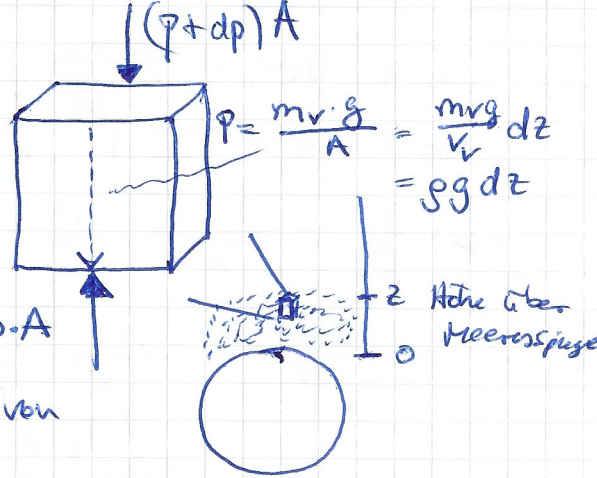 (p+dp) A
p = mv·g / A = mvg / Vv dz
= ρg dz
p·A
von
z Höhe über
Meeresspiege
0